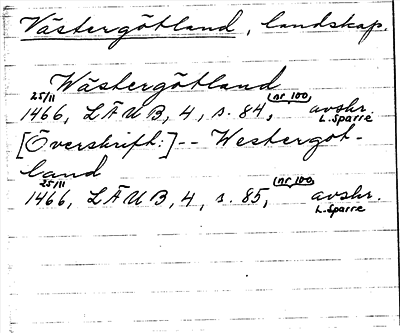 Västergötland, landskap.
Wästergötland
25/11 nr 100
1466, LÄUB, 4, s. 84, avskr.
L. Sparre
[Överskrift:] -- Westergöt-
land
25/11 nr 100
1466, LÄUB, 4, s. 85, avskr.
L. Sparre